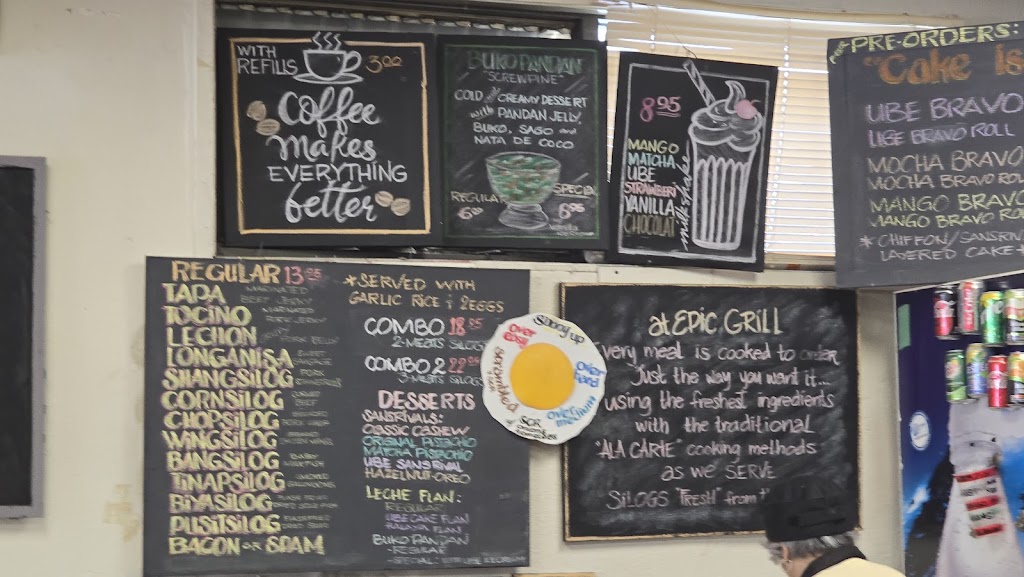 WITH
REFILLS
3.00
Coffee
Makes
EVERYTHING
better
BUKO PANDAN
"SCREWPINE"
COLD and CREAMY DESSERT
with PANDAN JELLY,
BUKO, SAGO and
NATA DE COCO
REGULAR
SPECIAL
8.95
MANGO
MATCHA
UBE
STRAWBERRY
VANILLA
CHOCOLAT
milkshake
PRE-ORDERS:
"Cake is
UBE BRAVO
UBE BRAVO ROLL
MOCHA BRAVO
MOCHA BRAVO ROLL
MANGO BRAVO
MANGO BRAVO ROLL
* CHIFFON/SANSRIV
LAYERED CAKE
REGULAR 13.95
TAPA
TOCINO
LECHON
LONGANISA
SHANGSILOG
CORNSILOG
CHOPSILOG
WINGSILOG
BANGSILOG
TINAPSILOG
BIYASILOG
PUSITSILOG
BACON or SPAM
*SERVED WITH
GARLIC RICE & 2EGGS
COMBO 18.95
2-MEATS SILOG
COMBO 2 22.95
3-MEATS SILOG
DESSERTS
SANSRIVALS:
CLASSIC CASHEW
ORIGINAL PISTACHIO
MATCHA PISTACHIO
UBE SANSRIVAL
HAZELNUT-OREO
LECHE FLAN:
REGULAR
UBE CAKE FLAN
BUKO PANDAN
-REGULAR
Sunny up
over easy
over hard
over medium
scrambled
at EPIC GRILL
every meal is cooked to order
Just the way you want it...
using the freshest ingredients
with the traditional
"ALA CARTE" cooking methods
as we SERVE
SILOGS "FRESH" from